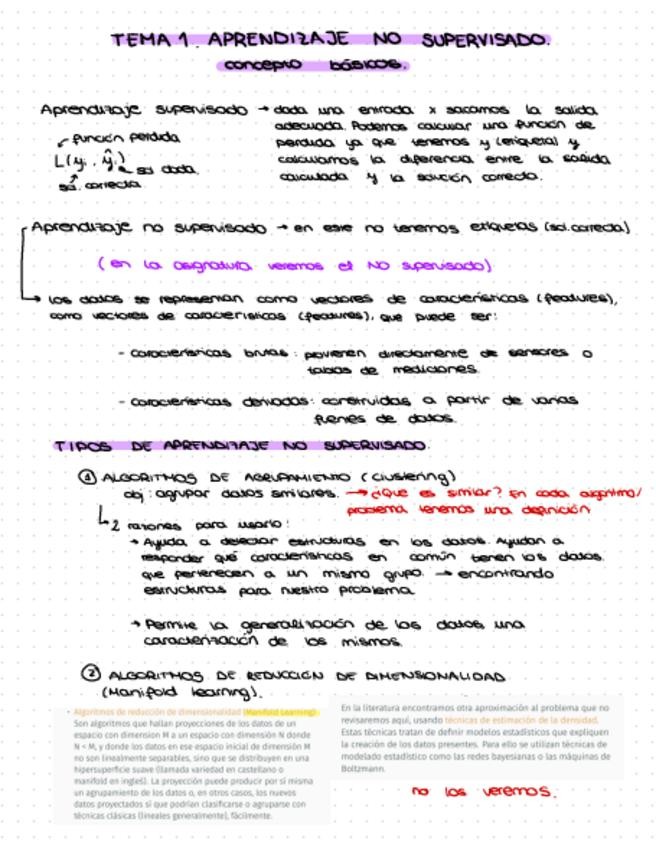 TEMA 1. APRENDIZAJE NO SUPERVISADO.
concepto básicos.
Aprendizaje supervisado → dada una entrada x sacamos la salida
adecuada. Podemos calcular una función de
perdida ya que tenemos y (etiqueta) y
calculamos la diferencia entre la salida
calculada y la solución correcta.
función perdida
L(y, ŷ) sol dada
sol. correcta
Aprendizaje no supervisado → en este no tenemos etiquetas (sol.correcta)
(en la asignatura veremos el NO supervisado)
los datos se representan como vectores de características (features),
como vectores de características (features), que puede ser:
- características brutas: provienen directamente de sensores o
tablas de mediciones.
- características derivadas: construidas a partir de varias
fuenes de datos.
TIPOS DE APRENDIZAJE NO SUPERVISADO.
① ALGORITMOS DE AGRUPAMIENTO (clustering)
obj: agrupar datos similares. → ¿Que es similar? En cada algoritmo/
problema tenemos una definición
2 razones para usarlo:
→ Ayuda a detectar estructuras en los datos. Ayudan a
responder qué características en común tienen los datos
que pertenecen a un mismo grupo. → encontrando
estructuras para nuestro problema
→ Permite la generalización de los datos una
caracterización de los mismos.
② ALGORITMOS DE REDUCCIÓN DE DIMENSIONALIDAD
(Manifold learning).
• Algoritmos de reducción de dimensionalidad (Manifold Learning).
Son algoritmos que hallan proyecciones de los datos de un
espacio con dimension M a un espacio con dimensión N donde
N < M, y donde los datos en ese espacio inicial de dimensión M
no son linealmente separables, sino que se distribuyen en una
hipersuperficie suave (llamada variedad en castellano o
manifold en inglés). La proyección puede producir por sí misma
un agrupamiento de los datos o, en otros casos, los nuevos
datos proyectados sí que podrían clasificarse o agruparse con
técnicas clásicas (lineales generalmente), fácilmente.
En la literatura encontramos otra aproximación al problema que no
revisaremos aquí, usando técnicas de estimación de la densidad.
Estas técnicas tratan de definir modelos estadísticos que expliquen
la creación de los datos presentes. Para ello se utilizan técnicas de
modelado estadístico como las redes bayesianas o las máquinas de
Boltzmann.
no los veremos.